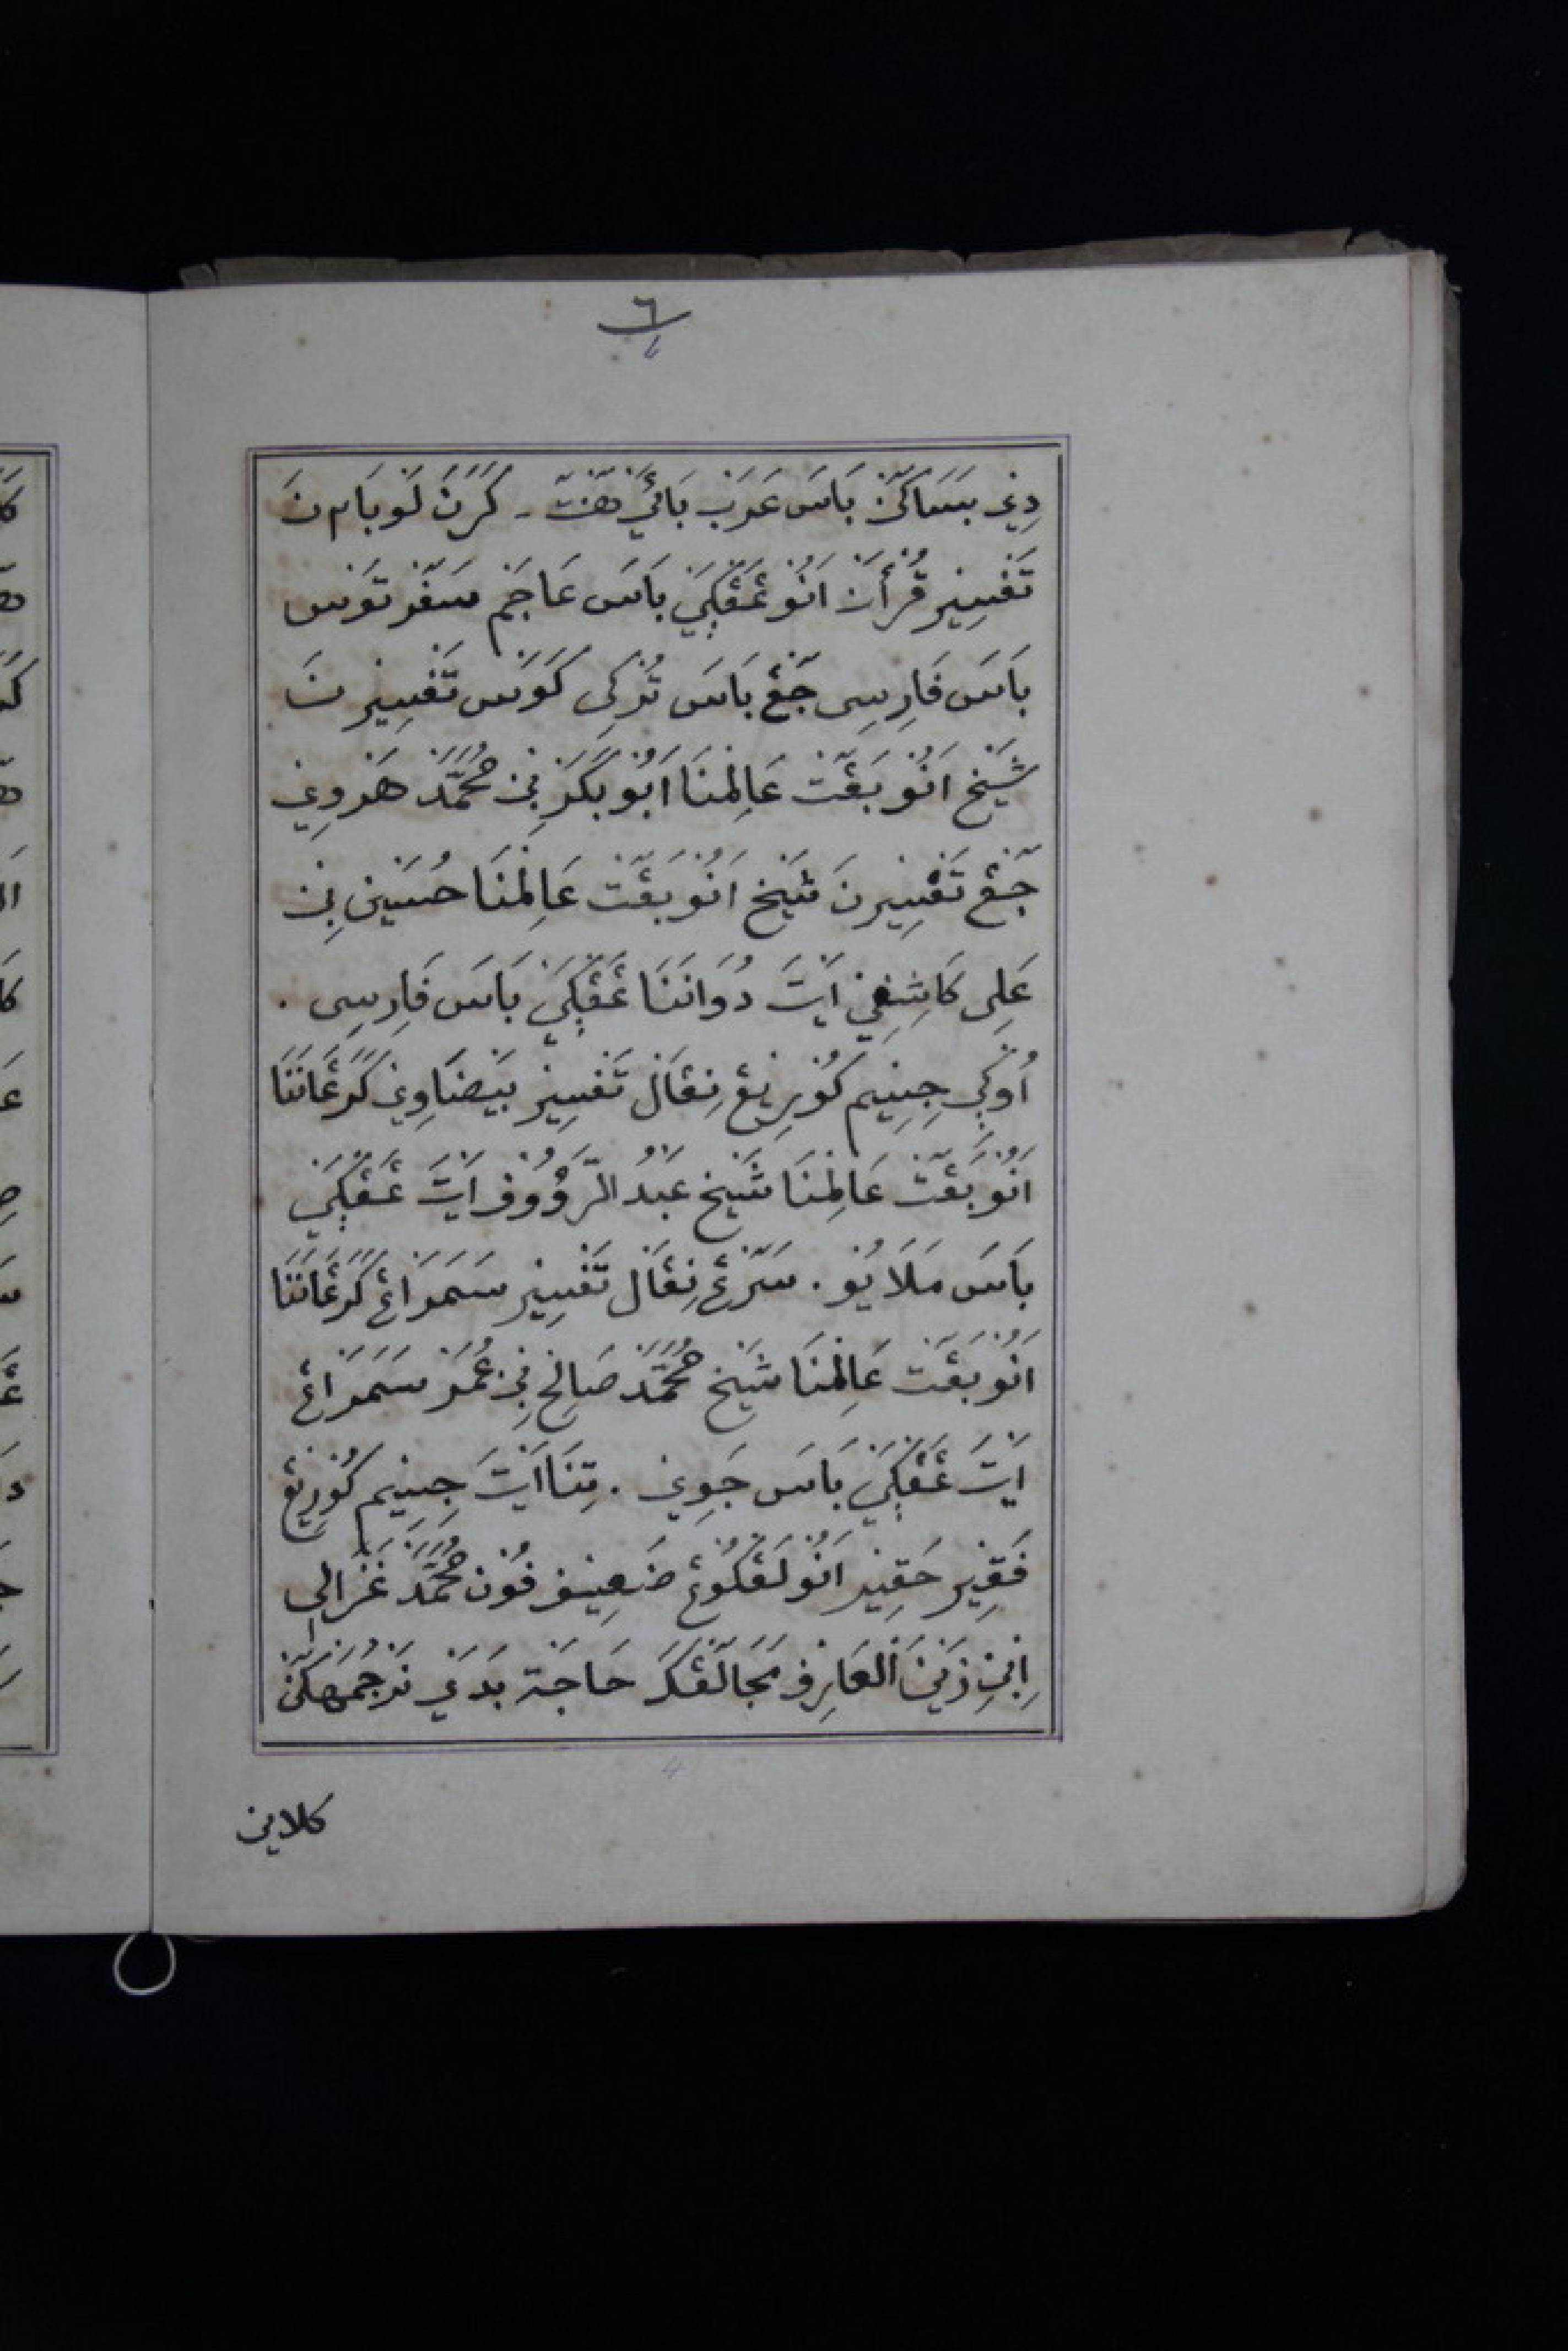 ٦
دِيْ بَسَاكَنْ بَاسَ عَرَبْ بَائَيْ هَنْتَ ـ كَرَنَ لَوْبَام نَ
تَفْسِيْر قُرْأَنْ اَنُوْ عَڠْڮَيْ بَاسَ عَاجَمْ سَفَرْتَوْس
بَاسَ فَارِسِى جَڠْ بَاسَ تُرْكِى كَوَسْ تَفْسِيْر نَ
شَيْخ اَنُوْ بَڠَتْ عَالِمْنَا اَبُوْ بَكَرْ بِنْ مُحَمَّدْ هَرْوِيْ
جَڠْ تَفْسِيْرنَ شَيْخ اَنُوْ بَڠَتْ عَالِمْنَا حُسَيْن بِنْ
عَلِى كَاشِفِيْ اَيْتَ دُوَانَنَا عَڠْڮَيْ بَاسَ فَارِسِى .
اُوڮَيْ جِيْم كُوْرِيْڠْ نِڠَالْ تَفْسِيْر بَيْضَاوِيْ كَرَڠَانَنَا
اَنُوْ بَڠَتْ عَالِمْنَا شَيْخ عَبْدُ الرَّؤُوْف اَيْتَ عَڠْڮَيْ
بَاسَ مَلَايُوْ . سَرَڠْ نِڠَالْ تَفْسِيْر سَمَرَاڠْ كَرَڠَانَنَا
اَنُوْ بَڠَتْ عَالِمْنَا شَيْخ مُحَمَّدْ صَالِحْ بِنْ عُمَرْ سَمَرَاڠْ
اَيْتَ عَڠْڮَيْ بَاسَ جَوِيْ . تِنَا اَيْتَ جِيْم كُوْرِيْڠْ
فَقِيْر حَقِيْر اَنُوْ لَڠْكُوْڠْ ضَعِيْف فُوْن مُحَمَّدْ غَزَالِي
اِبْنِ زَيْنَ الْعَارِفْ مَجَالَڠْكَرَ حَاجَة بَدَيْ تَرْجُمَهَكَنْ
4
كلاين